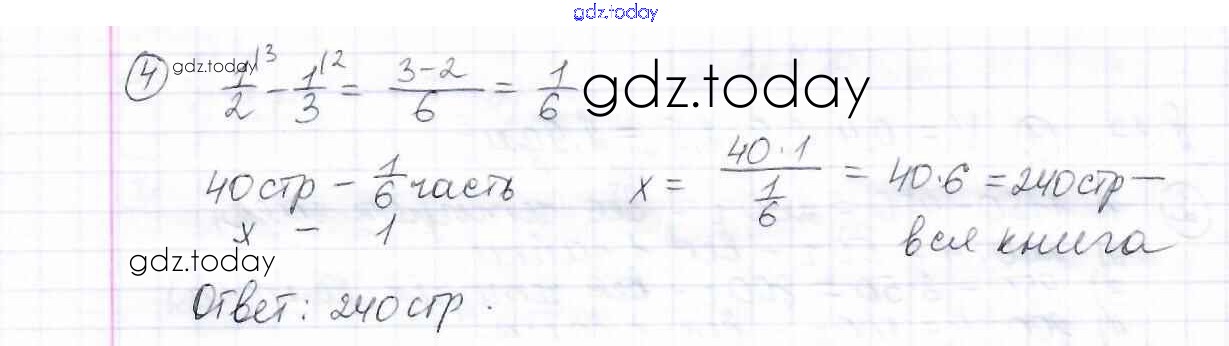 gdz.today
④ gdz.today 1/2|3 - 1/3|2 = (3-2)/6 = 1/6 gdz.today
40 стр - 1/6 часть x = (40·1)/(1/6) = 40·6 = 240 стр —
x - 1 вся книга
gdz.today
Ответ: 240 стр.